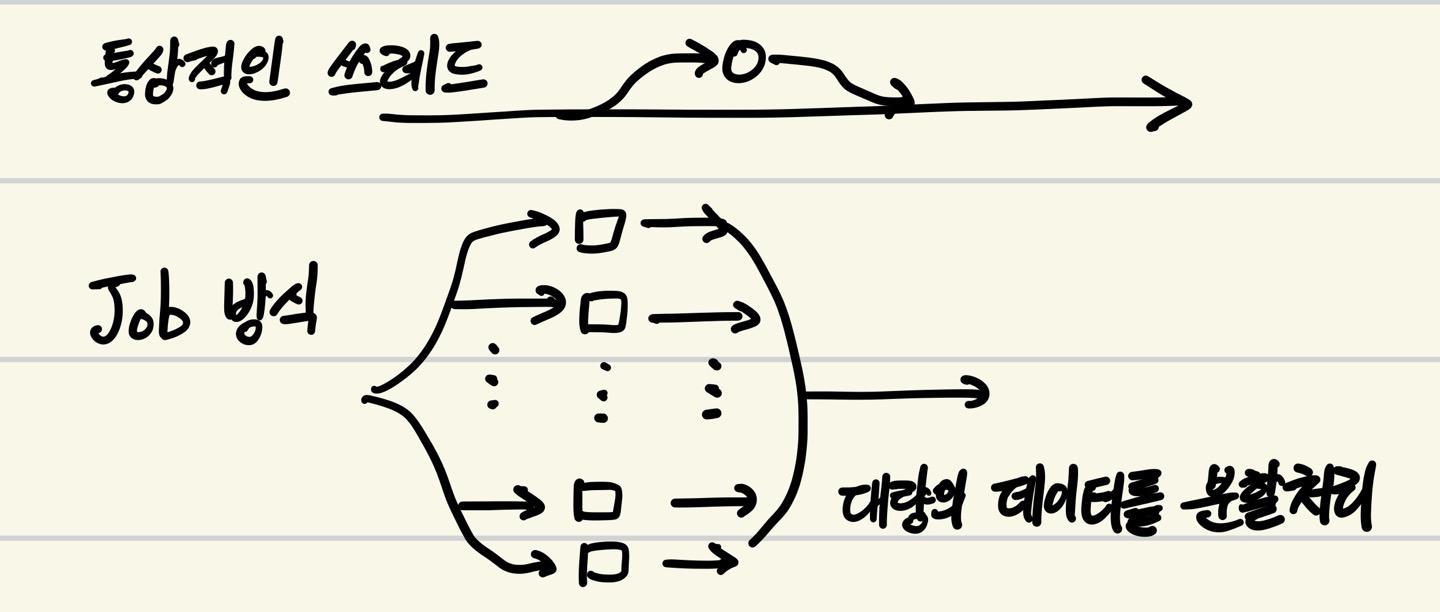 통상적인 쓰레드
Job 방식
대량의 데이터를 분할처리